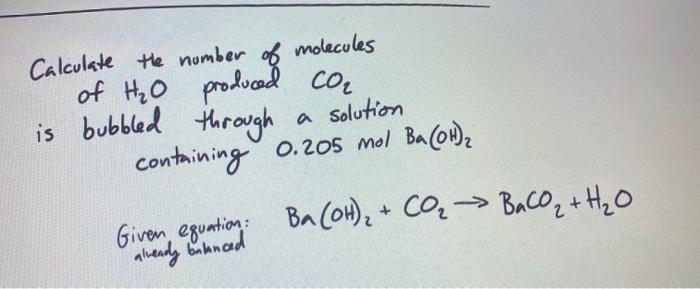 Calculate the number of molecules
of H₂O produced CO₂
is bubbled through a solution
containing 0.205 mol Ba(OH)₂
Given equation: Ba(OH)₂ + CO₂ → BaCO₂ + H₂O
already balanced